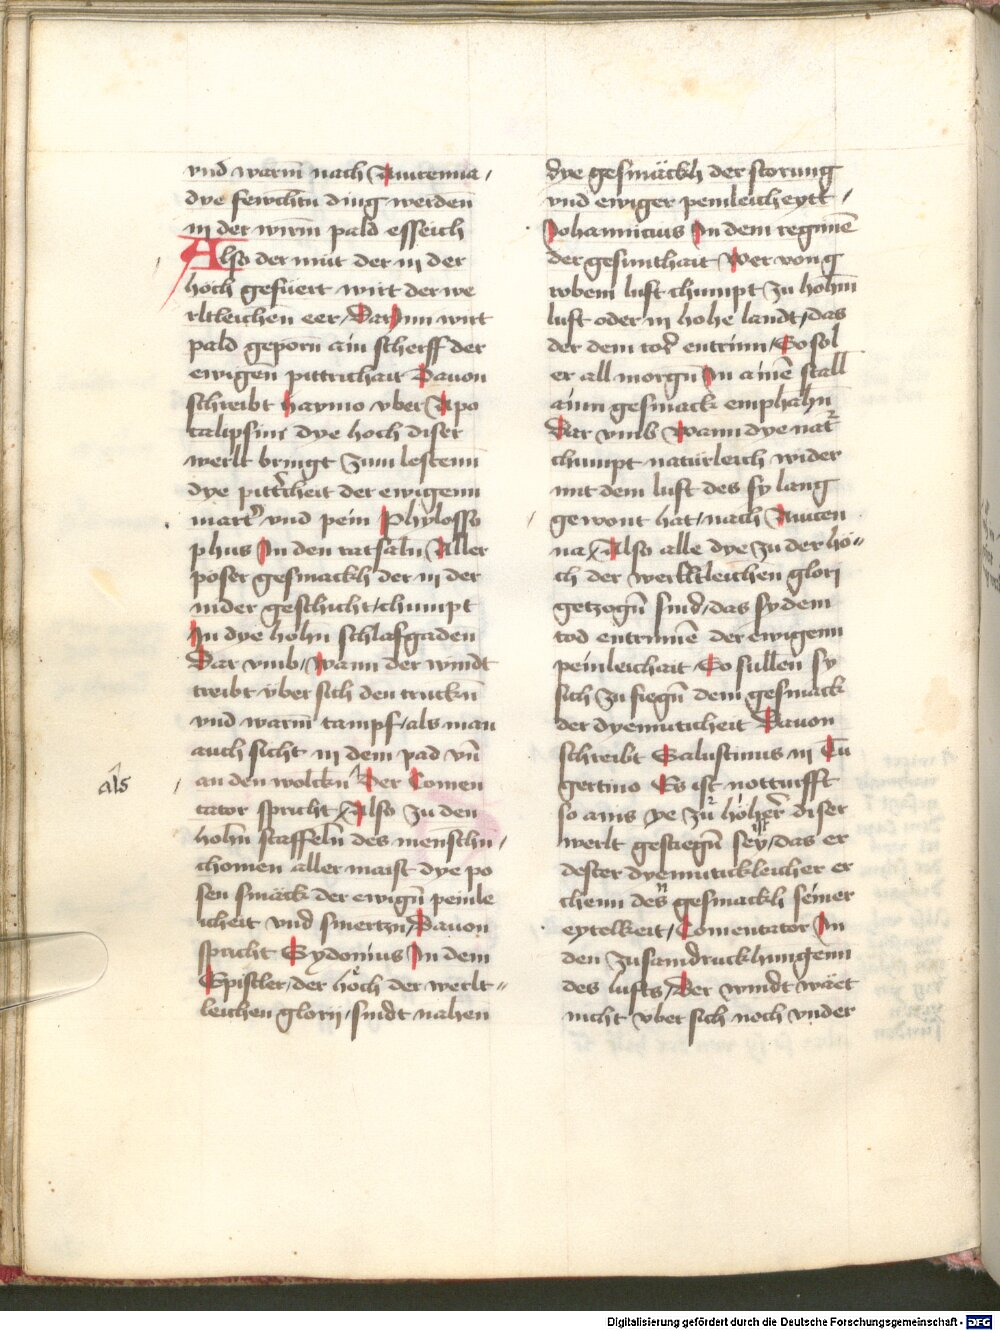 vnd warm̄ nach Auicenna /
dye fewchtn̄ ding werden
in der wirm̄ pald esseich
Also der müt der in der
höch gefüert wirt der we
rltleichen eer / Dar Inn wirt
pald geporn̄ ain scherff der
ewigen̄ pittrichait Dauon
schreibt haymo vber Apo
calipsim dye hoch diser
werlt bringt zum lestenn
dye pittrͤcheit der ewigenn
martͤ vnd pein Phylosso
phus In den ratsaln̄ Aller
pöser gesmackh der in der
nider geschicht / chumpt
In dye hohn̄ schlafgaden
Dar vmb / wann der windt
treibt über sich den truckn̄
vnd warm̄ tampf / als man
auch sicht in dem pad vn̄
als
an den wolckn̄ Der Comen
tator spricht Also zu den
hohn̄ staffeln̄ des menschn̄ /
chomen aller maist dye po
sen smäck der ewign̄ peinle
icheit vnd smertzn̄ / Dauon
spricht Sydonius In dem
Epistler / der höch der werlt=
leichen glorij / sindt nahen
dye gesmäckh der storung
vnd ewiger peinleicheytt /
Johannicius In dem regimē
der gesunthait Wer von g
robem luft chumpt zu hohm̄
luft oder in hohe landt / das
der dem tod entrinn / So sol
er all morgn̄ In ainē stall
ainn gesmack emphahn̄
Dar vmb Wann dye nat̉
chumpt natürleich wider
mit dem luft des sy lang
gewont hat / nach Auicen
na Also alle dye zu der hö=
ch der werltleichen glori
getzogn̄ sind / das sy dem
tod entrinnē der ewigenn
peinleichait So sullen sy
sich zu fiegn̄ dem gesmack
der dyemuticheit Dauon
schreibt Salustinus in Cu
gertino Es ist notturfft
so ains ye zu höher̉ diser
werlt gestiegn̄ sey / das er
dester dyemutickleicher er
chenn den gesmackh seiner
eytelkeit / Comentator In
den zusamdruckhungenn
des lufts / Der windt wäet
nicht vber sich noch vnder
Digitalisierung gefördert durch die Deutsche Forschungsgemeinschaft - DFG